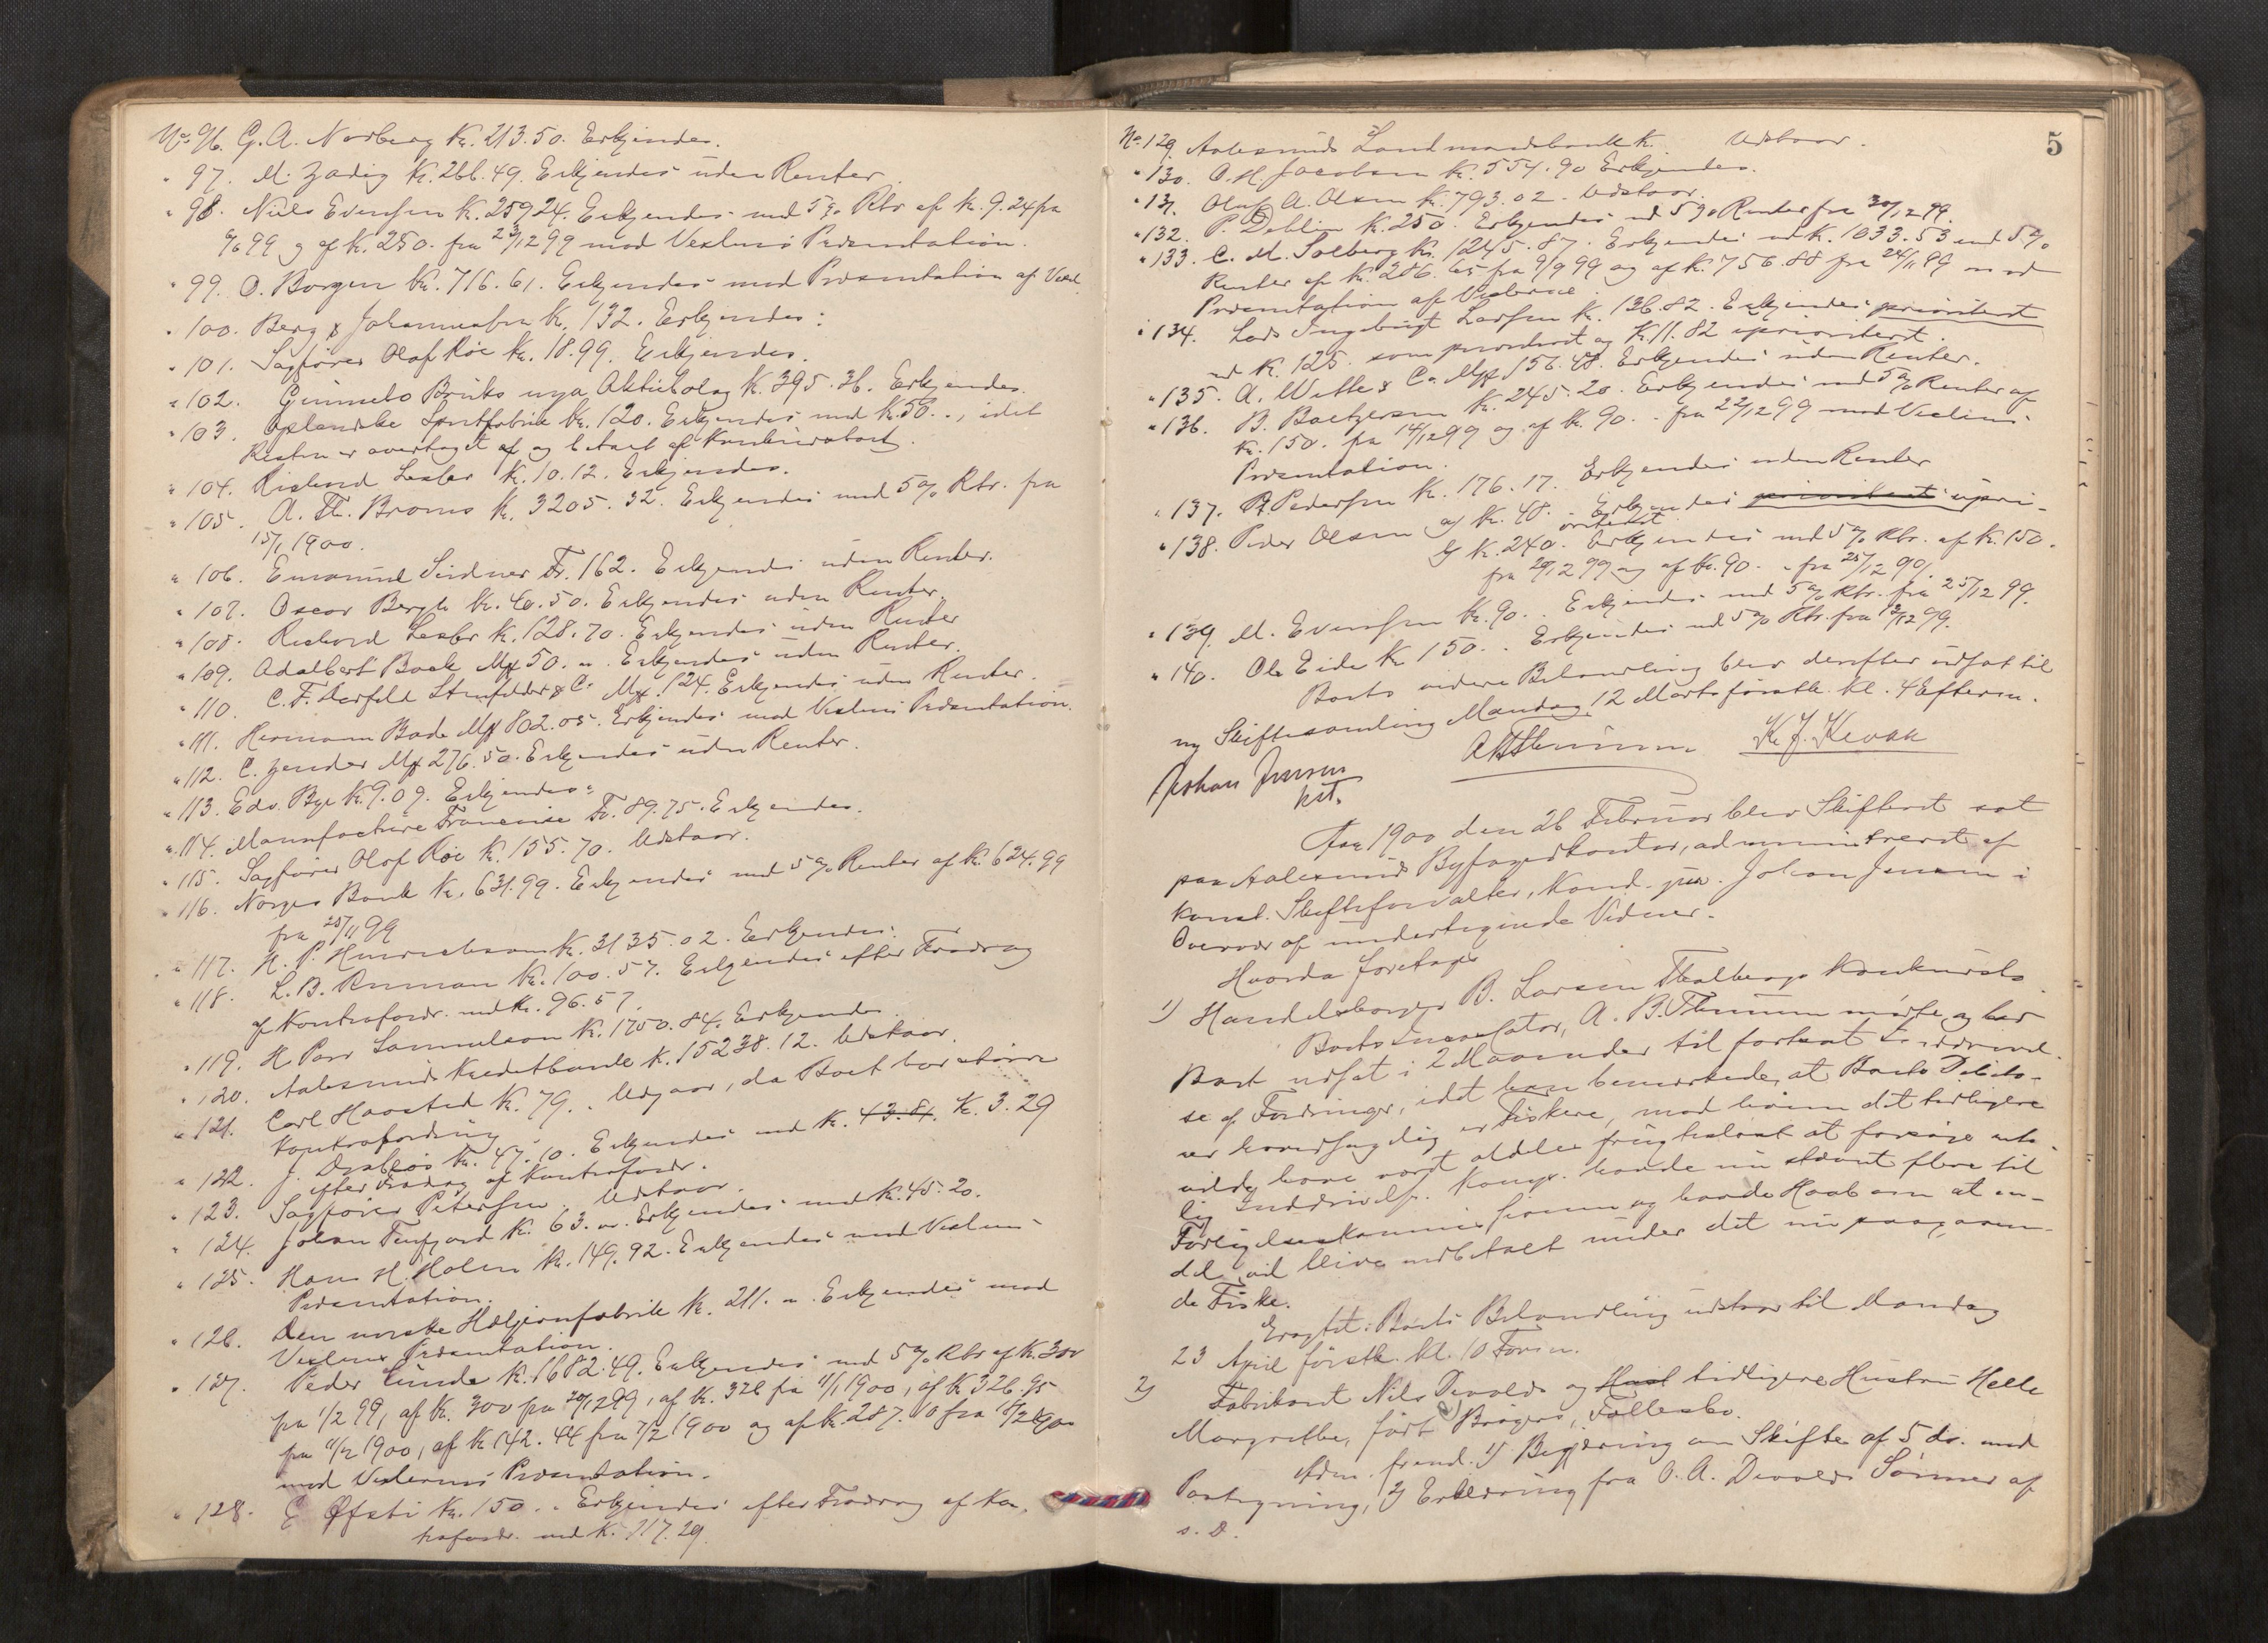 No 96. G. A. Norberg Kr. 213.50. Erkjendes.
" 97. M. Zadig Kr. 266.49. Erkjendes uden Renter.
" 98. Niels Evensen Kr. 25924. Erkjendes med 5% Rtr. af Kr. 9.24 fra
6/6 99 og af Kr. 250. fra 23/12 99 mod Vexlens Præsentation.
" 99. O. Borgen Kr. 716.61. Erkjendes mod Præsentation af Vexl.
" 100. Berg & Johannessen Kr. 132. Erkjendes.
" 101. Sagfører Olaf Roe Kr. 18.99. Erkjendes.
" 102. Gimmelo Bruks nya Aktiebolag Kr. 395.36. Erkjendes.
" 103. Oplandske Spritfabrik Kr. 120. Erkjendes med Kr. 50. , idet
Resten er overtaget af og betalt af
" 104. Richard Lester Kr. 10.12. Erkjendes.
" 105. A. Th. Broms Kr. 3205.32. Erkjendes med 5% Rtr. fra
15/1 1900.
" 106. Emanuel Lindner Fr. 162. Erkjendes uden Renter.
" 107. Oscar Bergh Kr. 40.50. Erkjendes uden Renter.
" 108. Richard Lester Kr. 128.70. Erkjendes uden Renter
" 109. Adalbert Back Mk 50. Erkjendes uden Renter.
" 110. C. F. & Co Mk 124. Erkjendes uden Renter.
" 111. Hermann Bade Mk 802.05. Erkjendes mod Vexlens Præsentation.
" 112. C. Zender Mk 276.50. Erkjendes uden Renter.
" 113. Edv. Bye Kr. 9.09. Erkjendes.
" 114. Manufacture Francaise Fr. 89.75. Erkjendes.
" 115. Sagfører Olaf Roe Kr. 155.70. Udstaar.
" 116. Norges Bank Kr. 631.99. Erkjendes med 5% Renter af Kr. 624.99
fra 25/11 99
" 117. H. P. Kr. 3135.02. Erkjendes.
" 118. L. B. Kr. 100.57. Erkjendes efter Fradrag
af Kontrafordr. med Kr. 96.57.
" 119. H. Parr Samuelson Kr. 1750.84. Erkjendes.
" 120. Aalesunds Kreditbank Kr. 15238.12. Udstaar.
" 121. Carl Haasted Kr. 79. Udgaar, da Boet har større
Kontrafordring
" 122. J. Kr. 47.10. Erkjendes med Kr. 43.81. Kr. 3.29
efter Fradrag af Kontrafordr.
" 123. Sagfører Petersen. Udstaar.
" 124. Johan Tenfjord Kr. 63. Erkjendes med Kr. 45.20.
" 125. Hans H. Holen Kr. 149.92. Erkjendes mod Vexlens
Præsentation.
" 126. Den norske Hæljernfabrik Kr. 211. Erkjendes mod
Vexlens Præsentation.
" 127. Peder Lunde Kr. 1682.49. Erkjendes med 5% Rtr af Kr. 300
fra 1/2 99, af Kr. 300 fra 20/12 99, af Kr. 328 fra 11/1 1900, af Kr 326.95
fra 11/2 1900, af Kr 142.44 fra 7/2 1900 og af Kr. 287.10 fra 15/2 1900
mod Vexlernes Præsentation.
" 128. E Øfsti Kr. 150. Erkjendes efter Fradrag af Kon-
trafordr. med Kr. 117.29.
5
No 129. Aalesunds Landmandsbank Kr. Udstaar.
" 130. O. H. Jacobsen Kr. 554.90 Erkjendes.
" 131. Oluf A. Olsen Kr. 793.02. Udstaar.
" 132. P. Deblin Kr. 250. Erkjendes md 5% Renter fra 30/12 99.
" 133. C. M. Solberg Kr. 1245.87. Erkjendes md Kr. 1033.53 med 5%
Renter af Kr. 286.65 fra 9/9 99 og af Kr. 756.88 fra 24/11 99 mod
Præsentation af Vexlerne.
" 134. Lars Ingebrigt Larsen Kr. 136.82. Erkjendes prioritert
md Kr. 125. som prioritert og Kr. 11.82 uprioritert.
" 135. A. Witte & Co. Mk 156.48. Erkjendes uden Renter.
" 136. B. Kr. 245.20. Erkjendes md 5% Renter af
Kr. 150. fra 14/12 99 og af Kr. 90. fra 22/12 99 mod Vexlens
Præsentation.
" 137. P. Pedersen Kr. 176.17. Erkjendes uden Renter
" 138. Peder Olsen a) Kr. 48. Erkjendes prioritert upri-
oritert
b) Kr. 240. Erkjendes med 5% Rtr. af Kr. 150.
fra 29/12 99 og af Kr. 90. fra 25/12 99.
" 139. M. Evensen Kr. 90. Erkjendes med 5% Rtr. fra 25/12 99.
" 140. Ole Eide Kr 150. Erkjendes md 5% Rtr. fra 12/12 99.
Boets videre Behandling blev derefter udsat til
ny Skiftesamling Mandag 12 Marts førstk. Kl. 4 Efterm.
A B Thumm K. J. Kevan
Johan Jensen
kst.
Aar 1900 den 26 Februar blev Skifteret sat
paa Aalesunds Byfogedkontor, administreret af
konst. Skifteforvalter, Kand. jur. Johan Jensen i
Overvær af undertegnede Vidner.
Hvorda foretoges
1) Handelsborger B. Larsen Thalbergs Konkursbo.
Boets Incasator, A. B. Thumm mødte og bad
Boet udsat i 2 Maaneder til fortsat Inddrivel-
se af Fordringer, idet han bemærkede, at Boets Debito-
rer hovedsagelig er Fiskere, mod hvem det tidligere
vilde have været aldeles frugtesløst at forsøge rets-
lig Inddrivelse. Komp. havde nu stævnt flere til
Forligelseskommissionen og havde Haab om at en-
del vil blive indbetalt under det nu paagaaen-
de Fiske.
Eragtet: Boets Behandling udstaar til Mandag
23 April førstk. Kl. 10 Form.
2) Fabrikant Nils Devolds og Hust tidligere Hustru Helle
Margrethe, født Brøgers, Fællesbo.
Adm. fremd. 1) Begjæring om Skifte af 5 ds. med
Paategning, 2) Erklæring fra O. A. Devolds Sønner af
s. D.